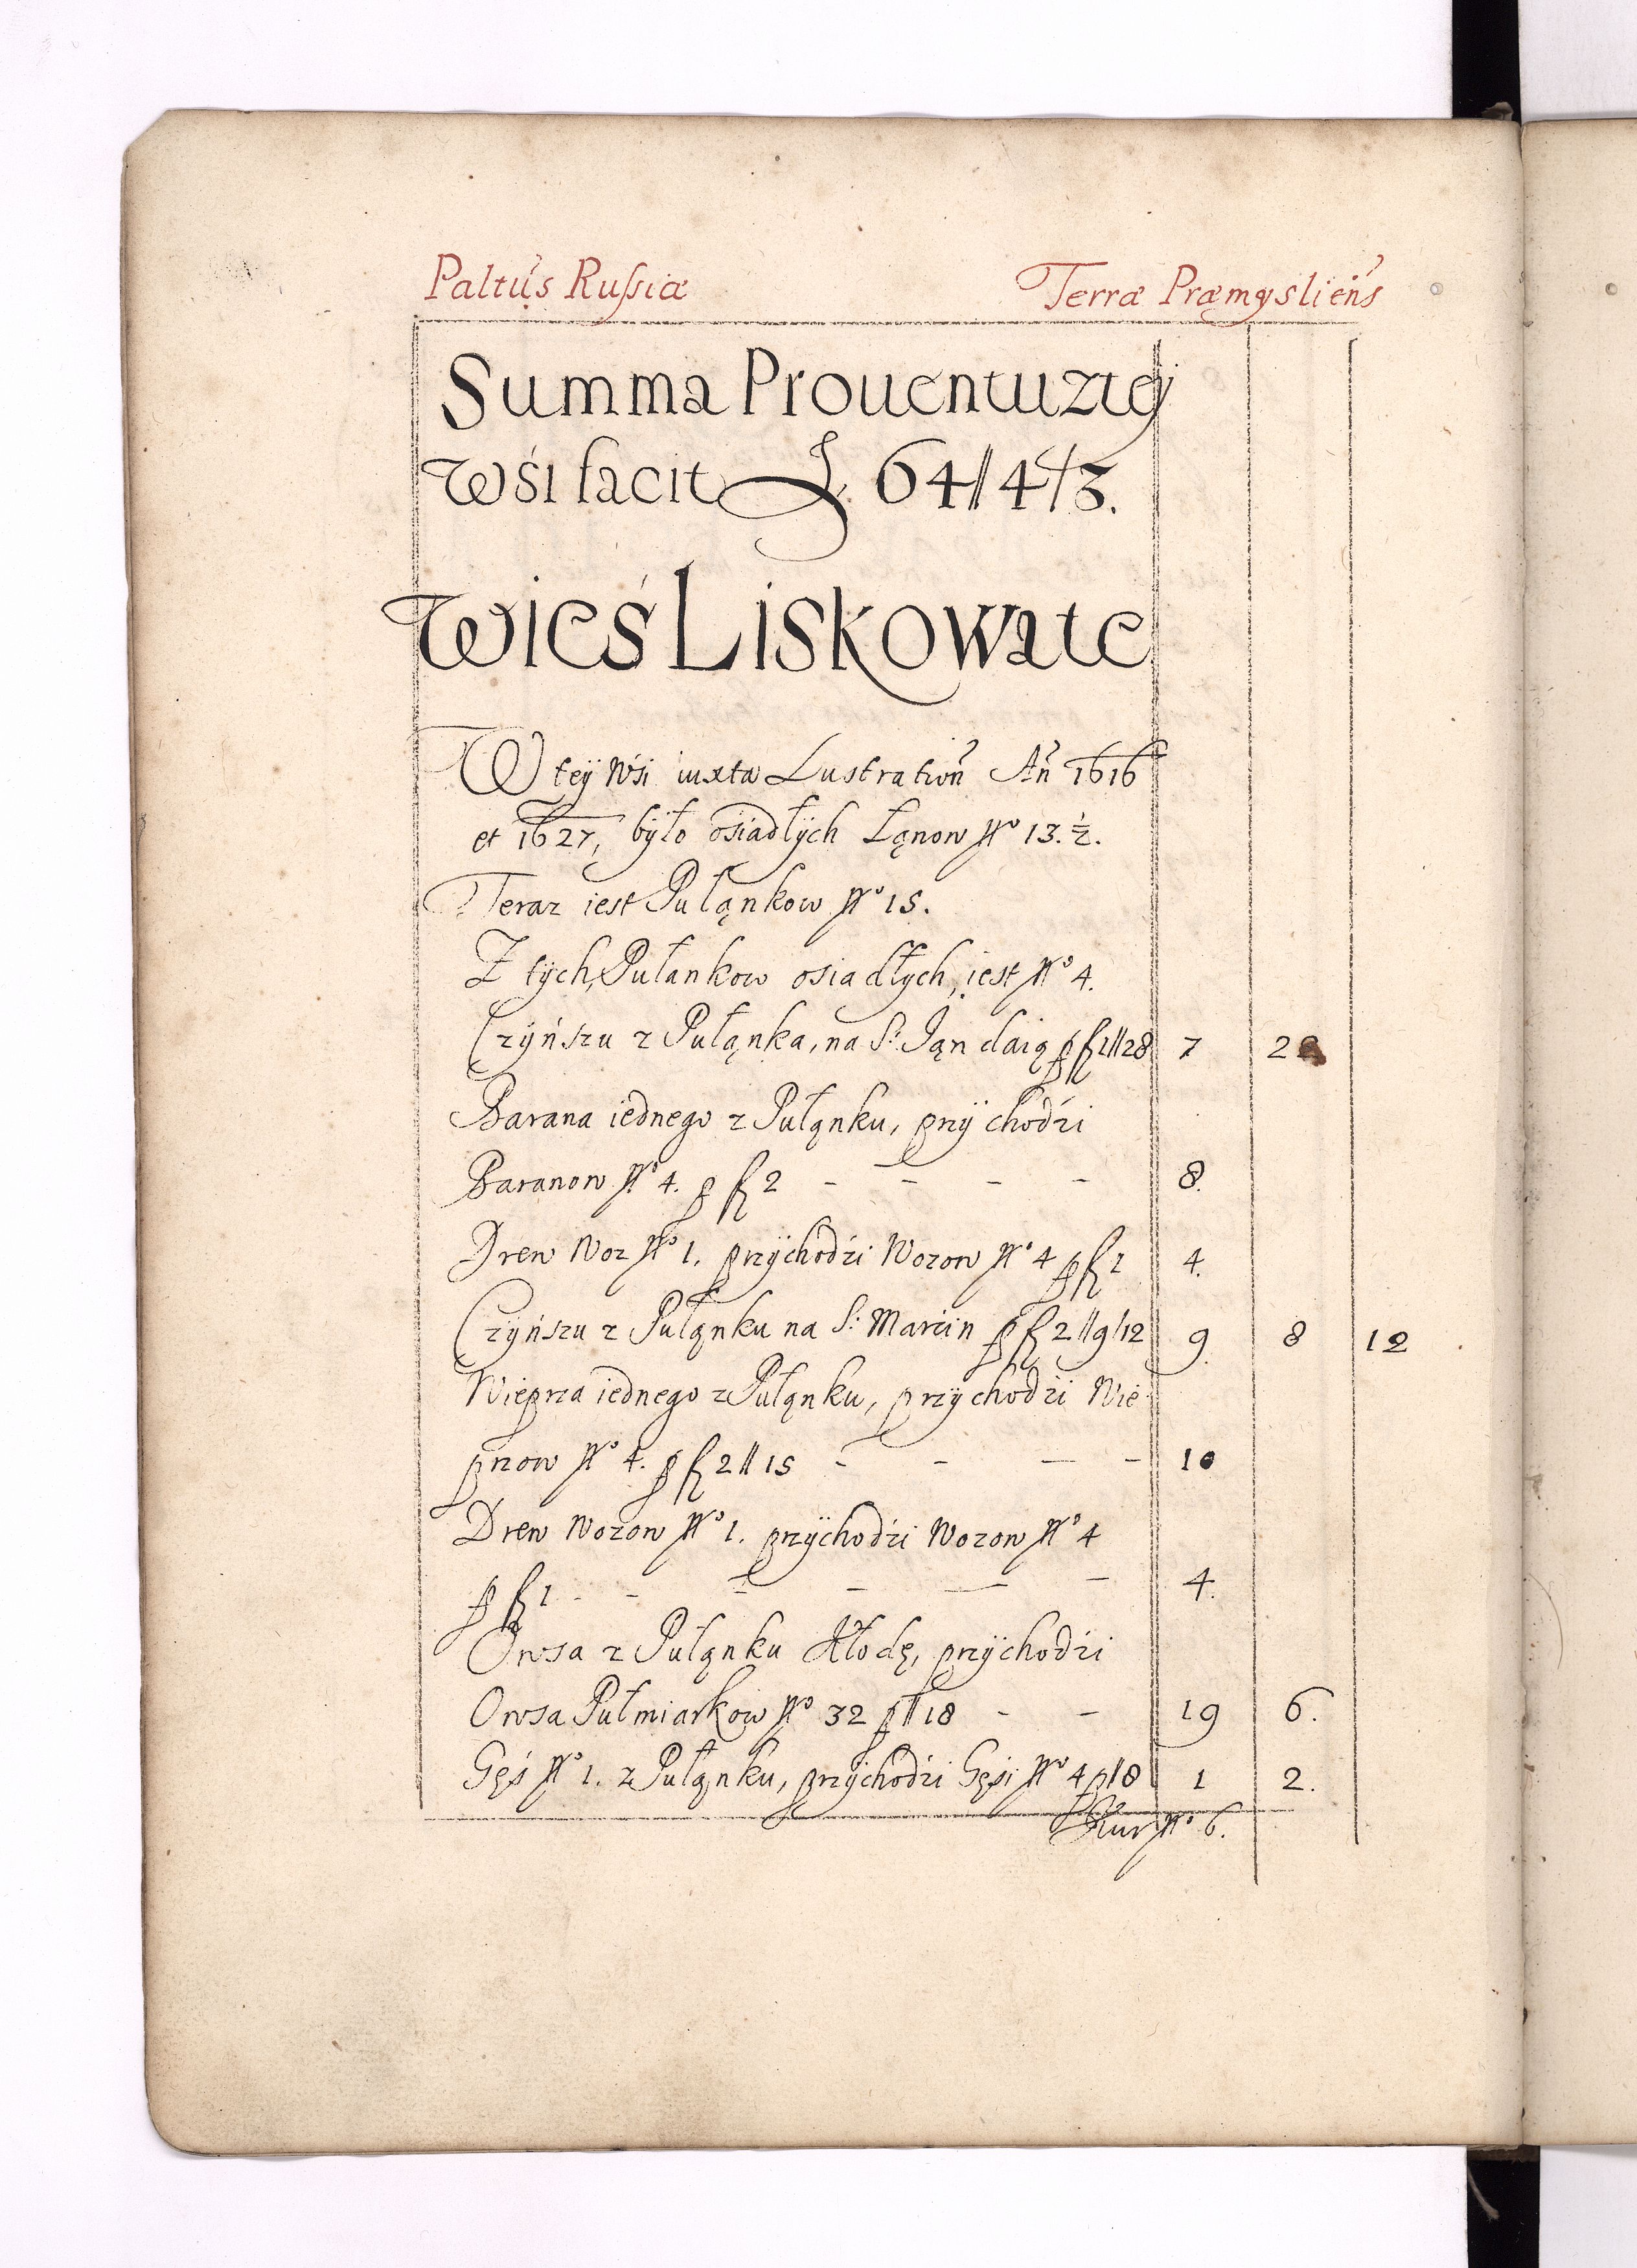 Paltus Russiæ Terræ Præmysliens
Summa Prouentu z tey
wśi facit fl 64//4/3.
Wieś Liskowate
W teÿ Wśi iuxta Lustration An 1616
et 1627, było ośiadłÿch Łąnow No 13. 1/2.
Teraz iest Pułąnkow No 15.
Z tÿch Pułankow osiadłych, iest No 4.
Czÿńszu z Pułąnka, na S: Ian daią p fl 1//28 7 22
Barana iednego z Pułąnku, przÿchodźi
Baranow No 4. p fl 2 - - - - 8.
Drew Woz No 1. przÿchodźi Wozow No 4 p fl 1 4.
Czÿńszu z Pułąnku na S: Marcin p fl 2//9/12 9 8 12
Wieprza iednego z Pułąnku, przychodźi Wie
przow No 4. p fl 2//15 - - - - 10
Drew Wozow No 1. przÿchodźi Wozow No 4
p fl 1 - - - - - - 4.
Owsa z Pułąnku Kłodę, przÿchodźi
Owsa Pułmiarkow No 32 p //18 - - 19 6.
Gęś No 1. z Pułąnku, przÿchodźi Gęśi No 4 p //8 1 2.
Kur No 6.